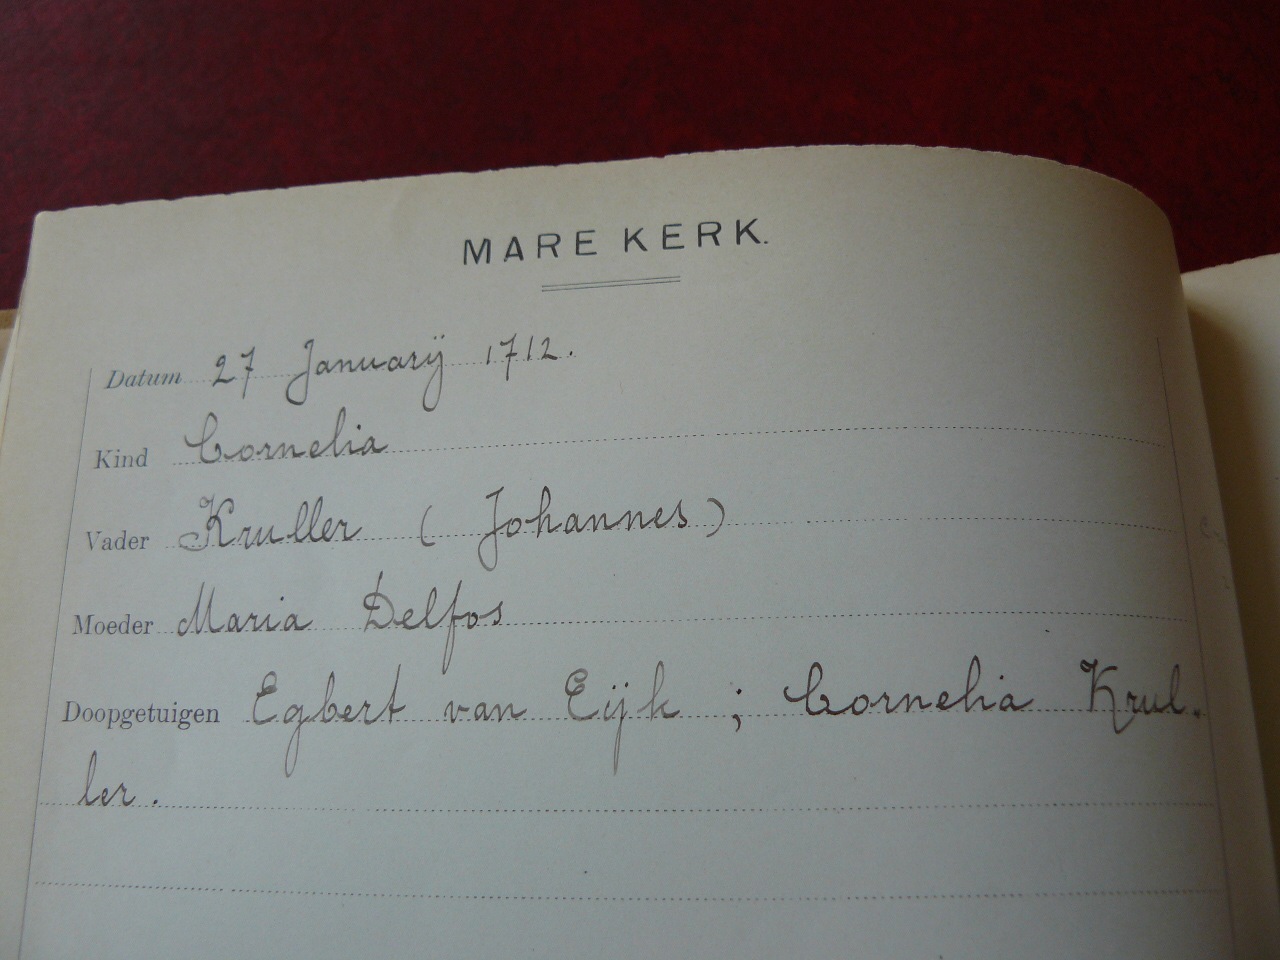 MARE KERK.
Datum 27 Januarÿ 1712.
Kind Cornelia
Vader Kruller ( Johannes )
Moeder Maria Delfos
Doopgetuigen Egbert van Eijk ; Cornelia Krul-
ler.